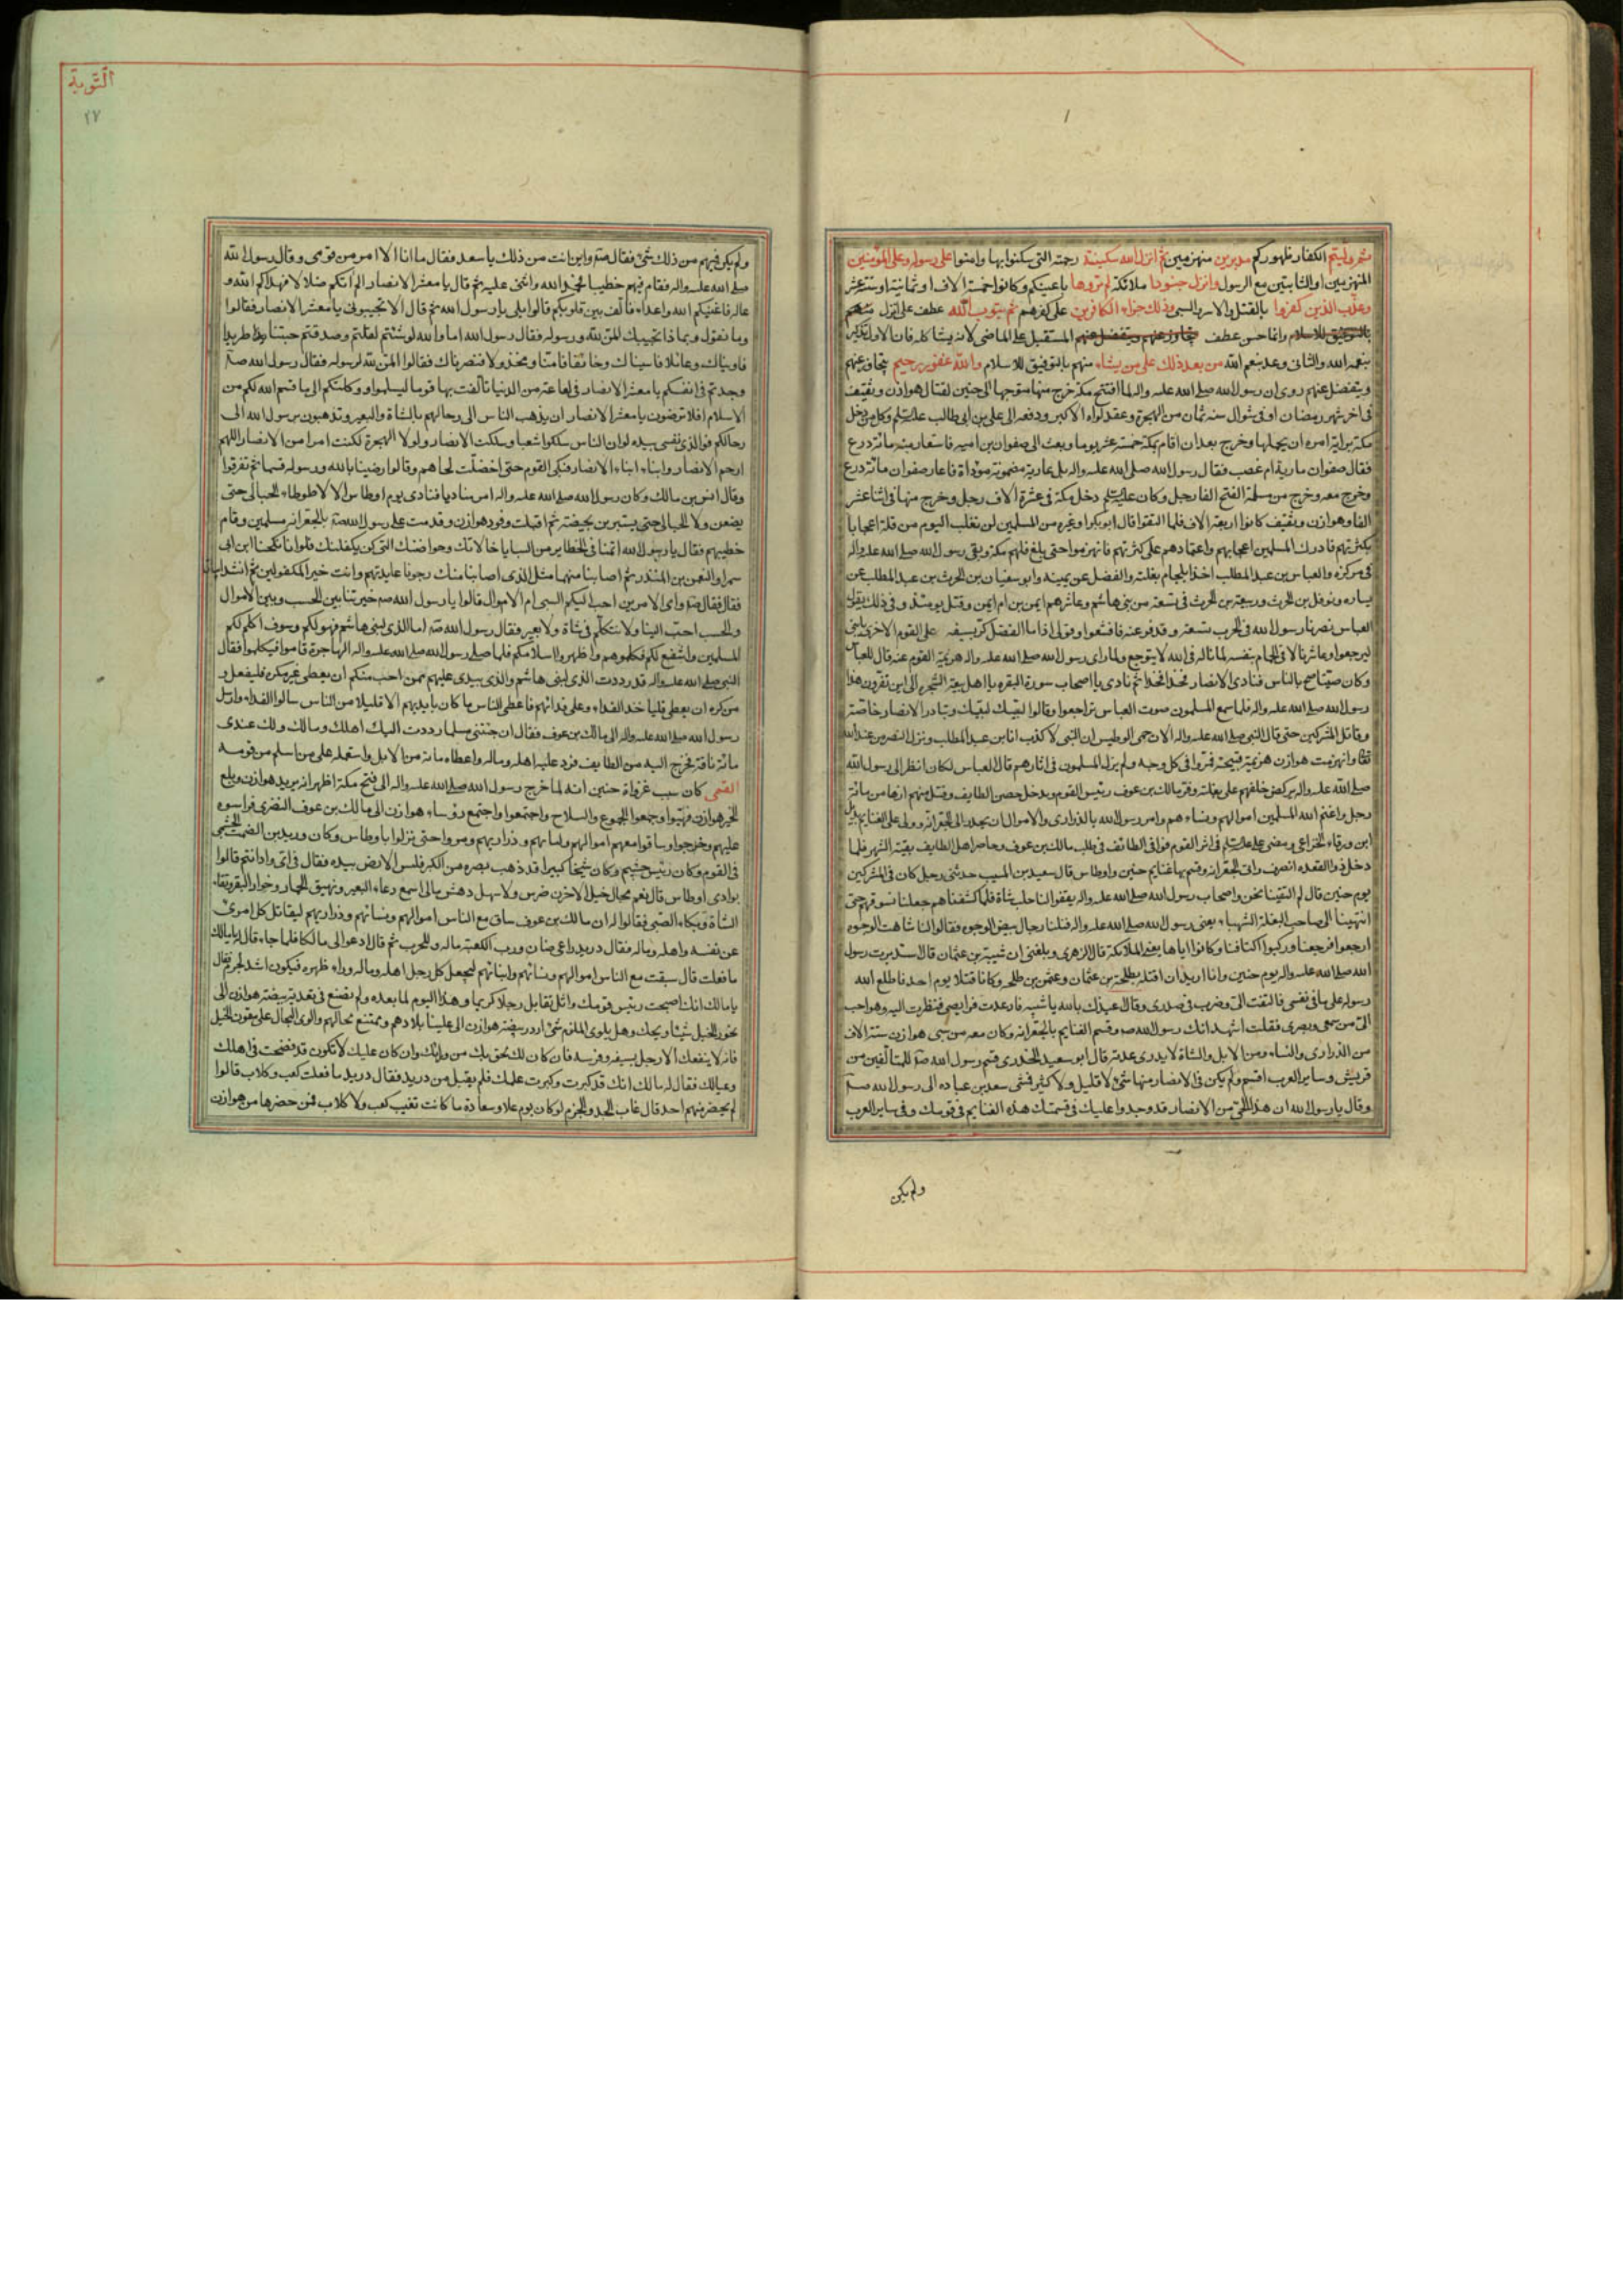 ثم وليتم الكفار ظهوركم مدبرين منهزمين ثم انزل الله سكينته رحمته التى سكنوا بها وامنوا على رسوله وعلى المؤمنين
المنهزمين او الثابتين مع الرسول وانزل جنودا ملائكة لم تروها باعينكم وكانوا خمسة الاف او ثمانية او ستة عشر
وعذب الذين كفروا بالقتل والاسر والسبى وذلك جزاء الكافرين على كفرهم ثم يتوب الله عطف على انزل
وانما حسن عطف المستقبل على الماضى لانه يشاكله فان الاول تذكير
بنعمة الله والثانى وعد بنعم الله من بعد ذلك على من يشاء منهم بالتوفيق للاسلام والله غفور رحيم يتجاوز عنهم
ويتفضل عنهم روى ان رسول الله صلى الله عليه واله لما افتتح مكة خرج منها متوجها الى حنين لقتال هوازن وثقيف
فى اخر شهر رمضان او فى شوال سنة ثمان من الهجرة وعقد لواه الاكبر ودفعه الى على بن ابى طالب وكل من دخل
مكة براية امره ان يحملها وخرج بعد ان اقام بمكة خمسة عشر يوما وبعث الى صفوان بن اميه فاستعار منه مائة درع
فقال صفوان عارية ام غصب فقال رسول الله صلى الله عليه واله بل عارية مضمونة مؤداة فاعار صفوان مائة درع
وخرج معه وخرج من مسلمة الفتح الفا رجل وكان دخل مكة فى عشرة الاف رجل وخرج منها فى اثنا عشر
الفا وهوازن وثقيف كانوا اربعة الاف فلما التقوا قال ابو بكر او غيره من المسلمين لن نغلب اليوم من قلة اعجابا
بكثرتهم فادرك المسلمين اعجابهم واعتمادهم على كثرتهم فانهزموا حتى بلغ فلهم مكة وبقى رسول الله صلى الله عليه واله
فى مركزه والعباس بن عبد المطلب اخذ بلجام بغلته والفضل عن يمينه وابو سفيان بن الحرث بن عبد المطلب عن
يساره ونوفل بن الحرث وربيعة بن الحرث فى تسعة من بنى هاشم وعاشرهم ايمن بن ام ايمن وقتل يومئذ وفى ذلك يقول
العباس نصرنا رسول الله فى الحرب تسعة وقد فر عنه فاقشعوا وقولى اذا ما الفضل كر بسيفه على القوم الاخرى يا بنى
ليرجعوا وعاشرنا لاقى الحمام بنفسه لما ناله فى الله لا يتوجع ولما راى رسول الله صلى الله عليه واله هزيمة القوم عنه قال للعباس
وكان صيتا صح بالناس فنادى الانصار فخذا فخذا ثم نادى يا اصحاب سورة البقره يا اهل بيعة الشجره الى اين تفرون هذا
رسول الله صلى الله عليه واله فلما سمع المسلمون صوت العباس تراجعوا وقالوا لبيك لبيك وتبادر الانصار خاصة
وقاتل المشركين حتى قال النبى صلى الله عليه واله الان حمى الوطيس انا النبى لا كذب انا بن عبد المطلب ونزل النصر من عند الله
تعالى وانهزمت هوازن هزيمة قبيحة فمروا فى كل وجه ولم يزل المسلمون فى اثارهم قال العباس لكان انظر الى رسول الله
صلى الله عليه واله يركض خلفهم على بغلته وفر مالك بن عوف رئيس القوم ودخل حصن الطايف وقتل منهم ازها من مائة
رجل واغنم الله المسلمين اموالهم ونساءهم وامر رسول الله بالذرارى والاموال ان يحدر الى الجعرانة وولى على الغنايم بديل
ابن ورقاء الخزاعى ومضى فى اثر القوم فوافى الطائف فى طلب مالك بن عوف وحاصر اهل الطايف بقية الشهر فلما
دخل ذو القعده انصرف واتى الجعرانه وقسم بها غنايم حنين واوطاس قال سعيد بن المسيب حدثنى رجل كان فى المشركين
يوم حنين قال لم التقينا نحن واصحاب رسول الله صلى الله عليه واله لم يقفوا لنا حلب شاة فلما كشفناهم جعلنا نسوقهم حتى
انتهينا الى صاحب البغلة الشهباء يعنى رسول الله صلى الله عليه واله فتلقنا رجال بيض الوجوه فقالوا لنا شاهت الوجوه
ارجعوا فرجعنا وركبوا اكتافنا وكانوا اياها يعنى الملائكة قال الزهرى وبلغنى ان شيبة بن عثمان قال استدبرت رسول
الله صلى الله عليه واله يوم حنين وانا اريد ان اقتله بطلحة بن عثمان وعثمن بن طلحه وكانا قتلا يوم احد فاطلع الله
رسوله على ما فى نفسى فالتفت الى وضرب فى صدرى وقال اعيذك بالله يا شيبه فارعدت فرايصى فنظرت اليه وهو احب
الى من سمعى وبصرى فقلت اشهد انك رسول الله وقسم الغنايم بالجعرانه وكان معه من سبى هوازن ستة الاف
من الذرارى والنساء ومن الابل والشاة لا يدرى عدته قال ابو سعيد الخدرى قسم رسول الله للمتالفين من
قريش وساير العرب اقسم ولم يكن فى الانصار منها شئ لا قليل ولا كثير فمشى سعد بن عباده الى رسول الله
وقال يا رسول الله ان هذا الحى من الانصار قد وجدوا عليك فى قسمتك هذه الغنايم فى قومك وفى ساير العرب
ولم يكن
التوبة
٢٧
ولم يكن فيهم من ذلك شئ فقال واين انت من ذلك يا سعد فقال ما انا الا امر من قومى وقال رسول الله
صلى الله عليه واله فقام فيهم خطيبا فحمد الله واثنى عليه ثم قال يا معشر الانصار الم اتكم ضلالا فهداكم الله و
عالة فاغنيكم الله واعداء فالف بين قلوبكم قالوا بلى يا رسول الله ثم قال الا تجيبونى يا معشر الانصار فقالوا
وما نقول وبماذا نجيبك المن لله ورسوله فقال رسول الله اما والله لو شئتم لقلتم وصدقتم جئتنا طريدا
فاويناك وعائلا فاسيناك وخائفا فامنا ومخذولا فنصرناك فقالوا المن لله لرسوله فقال رسول الله
وجدتم فى انفسكم يا معشر الانصار فى لعاعة من الدنيا تالفت بها قوما ليسلموا ووكلتكم الى ما قسم الله لكم من
الاسلام افلا ترضون يا معشر الانصار ان يذهب الناس الى رحالهم بالشاة والبعير وتذهبون برسول الله الى
رحالكم فوالذى نفسى بيده لو ان الناس سلكوا شعبا وسلكت الانصار ولولا الهجرة لكنت امرا من الانصار اللهم
ارحم الانصار وابناء ابناء الانصار فبكى القوم حتى اخضلت لحاهم وقالوا رضينا بالله ورسوله قسما ثم تفرقوا
وقال انس بن مالك وكان رسول الله صلى الله عليه واله امر مناديا فنادى يوم اوطاس الا لا طوطاء الحبالى حتى
يضعن ولا الحبالى حتى يستبرين بحيضة ثم اقبلت وفود هوازن وقدمت على رسول الله بالجعرانه مسلمين وقام
خطيبهم فقال يا رسول الله انما فى الحظاير من السبايا خالاتك وحواضنك التى كن يكفلنك فلو انا ملحنا ابن ابى
سمر او النعمن بن المنذر ثم اصابنا منهما مثل الذى اصابنا منك رجونا عايدتهم وانت خير المكفولين ثم انشد ابياتا
فقال فقال واى الامرين احب اليكم السبى ام الاموال قالوا يا رسول الله خيرتنا بين الحسب وبين الاموال
والحسب احب الينا ولا نتكلم فى شاة ولا بعير فقال رسول الله اما الذى لبنى هاشم فهو لكم وسوف اكلم لكم
المسلمين واشفع لكم فكلموهم واظهروا اسلامكم فلما صلى رسول الله صلى الله عليه واله الهاجرة قاموا فتكلموا فقال
النبى صلى الله عليه واله قد رددت الذى لبنى هاشم والذى بيدى عليهم فمن احب منكم ان يعطى غير مكره فليفعل و
من كره ان يعطى فلياخذ الفداء وعلى فدائهم فاعطى الناس ما كان بايديهم الا قليلا من الناس سالوا الفداء وارسل
رسول الله صلى الله عليه واله الى مالك بن عوف فقال ان جئتنى مسلما رددت اليك اهلك ومالك ولك عندى
مائة ناقة فخرج اليه من الطايف فرد عليه اهله وماله واعطاه مائة من الابل واستعمله على من اسلم من قومه
القمى كان سبب غزواة حنين انه لما خرج رسول الله صلى الله عليه واله الى فتح مكة اظهر انه يريد هوازن وبلغ
الخبر هوازن فتهيوا وجمعوا الجموع والسلاح واجتمعوا واجتمع رؤساء هوازن الى مالك بن عوف النضرى فراسوه
عليهم وخرجوا وساقوا معهم اموالهم ونساءهم وذراريهم ومروا حتى نزلوا باوطاس وكان دريد بن الصمة الجشمى
فى القوم وكان رئيس جشم وكان شيخا كبيرا قد ذهب بصره من الكبر فلمس الارض بيده فقال فى اى واد انتم قالوا
بوادى اوطاس قال نعم مجال الخيل لا حزن ضرس ولا سهل دهش مالى اسمع رغاء البعير ونهيق الحمار وخوار البقر وثغاء
الشاة وبكاء الصبى فقالوا له ان مالك بن عوف ساق مع الناس اموالهم ونسائهم وذراريهم ليقاتل كل امرئ
عن نفسه واهله وماله فقال دريد راعى ضان ورب الكعبة ماله وللحرب ثم قال ادعوا لى مالكا فلما جاء قال له يا مالك
ما فعلت قال سقت مع الناس اموالهم ونسائهم وابنائهم ليجعل كل رجل اهله وماله وراء ظهره فيكون اشد لحربه فقال
يا مالك انك اصبحت رئيس قومك وانك تقابل رجلا كريما وهذا اليوم لما بعده ولم تصنع فى تقدمة بيضة هوازن الى
نحور الخيل شيئا ويحك وهل يلوى المنهزم شئ اردد بيضة هوازن الى عليا بلادهم وممتنع محالهم والق الرجال على متون الخيل
فانه لا ينفعك الا رجل بسيفه وفرسه فان كان لك لحق بك من ورائك وان كان عليك لا تكون قد فضحت فى اهلك
وعيالك فقال له مالك انك قد كبرت وكبرت علمك فلم يقبل من دريد فقال دريد ما فعلت كعب وكلاب قالوا
لم يحضر منهم احد قال غاب الجد والحزم لو كان يوم علا وسعادة ما كانت تغيب كعب ولا كلاب فمن حضرها من هوازن